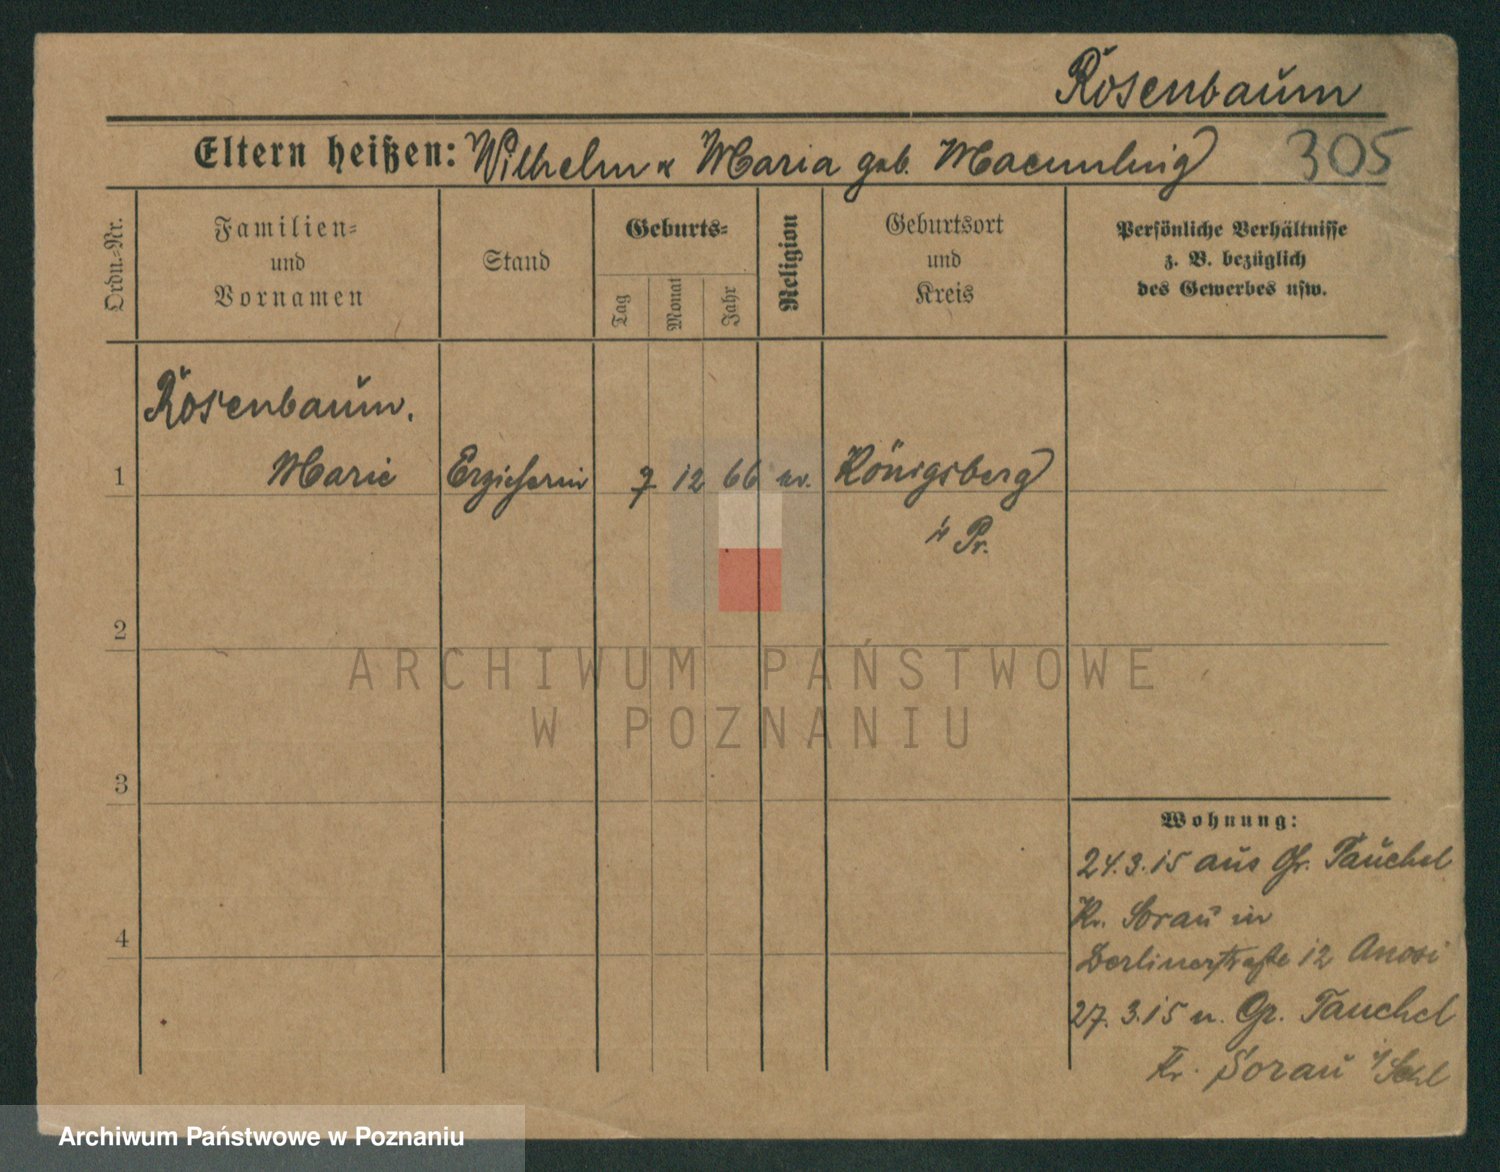 Rosenbaum
Eltern heißen: Wilhelm u Maria geb. 305
Ordn.-Nr.
Familien-
und
Vornamen
Stand
Geburts-
Tag
Monat
Jahr
Religion
Geburtsort
und
Kreis
Persönliche Verhältnisse
z. B. bezüglich
des Gewerbes usw.
Rosenbaum.
1 Marie Erzieherin 7 12 66 ev. Königsberg
i/ Pr.
2
ARCHIWUM PAŃSTWOWE
W POZNANIU
3
Wohnung:
24.3.15 aus Gr. Tauchel
Kr. Sorau in
4
Berlinerstraße 12
27.3.15 n. Gr. Tauchel
Kr. Sorau
Archiwum Państwowe w Poznaniu